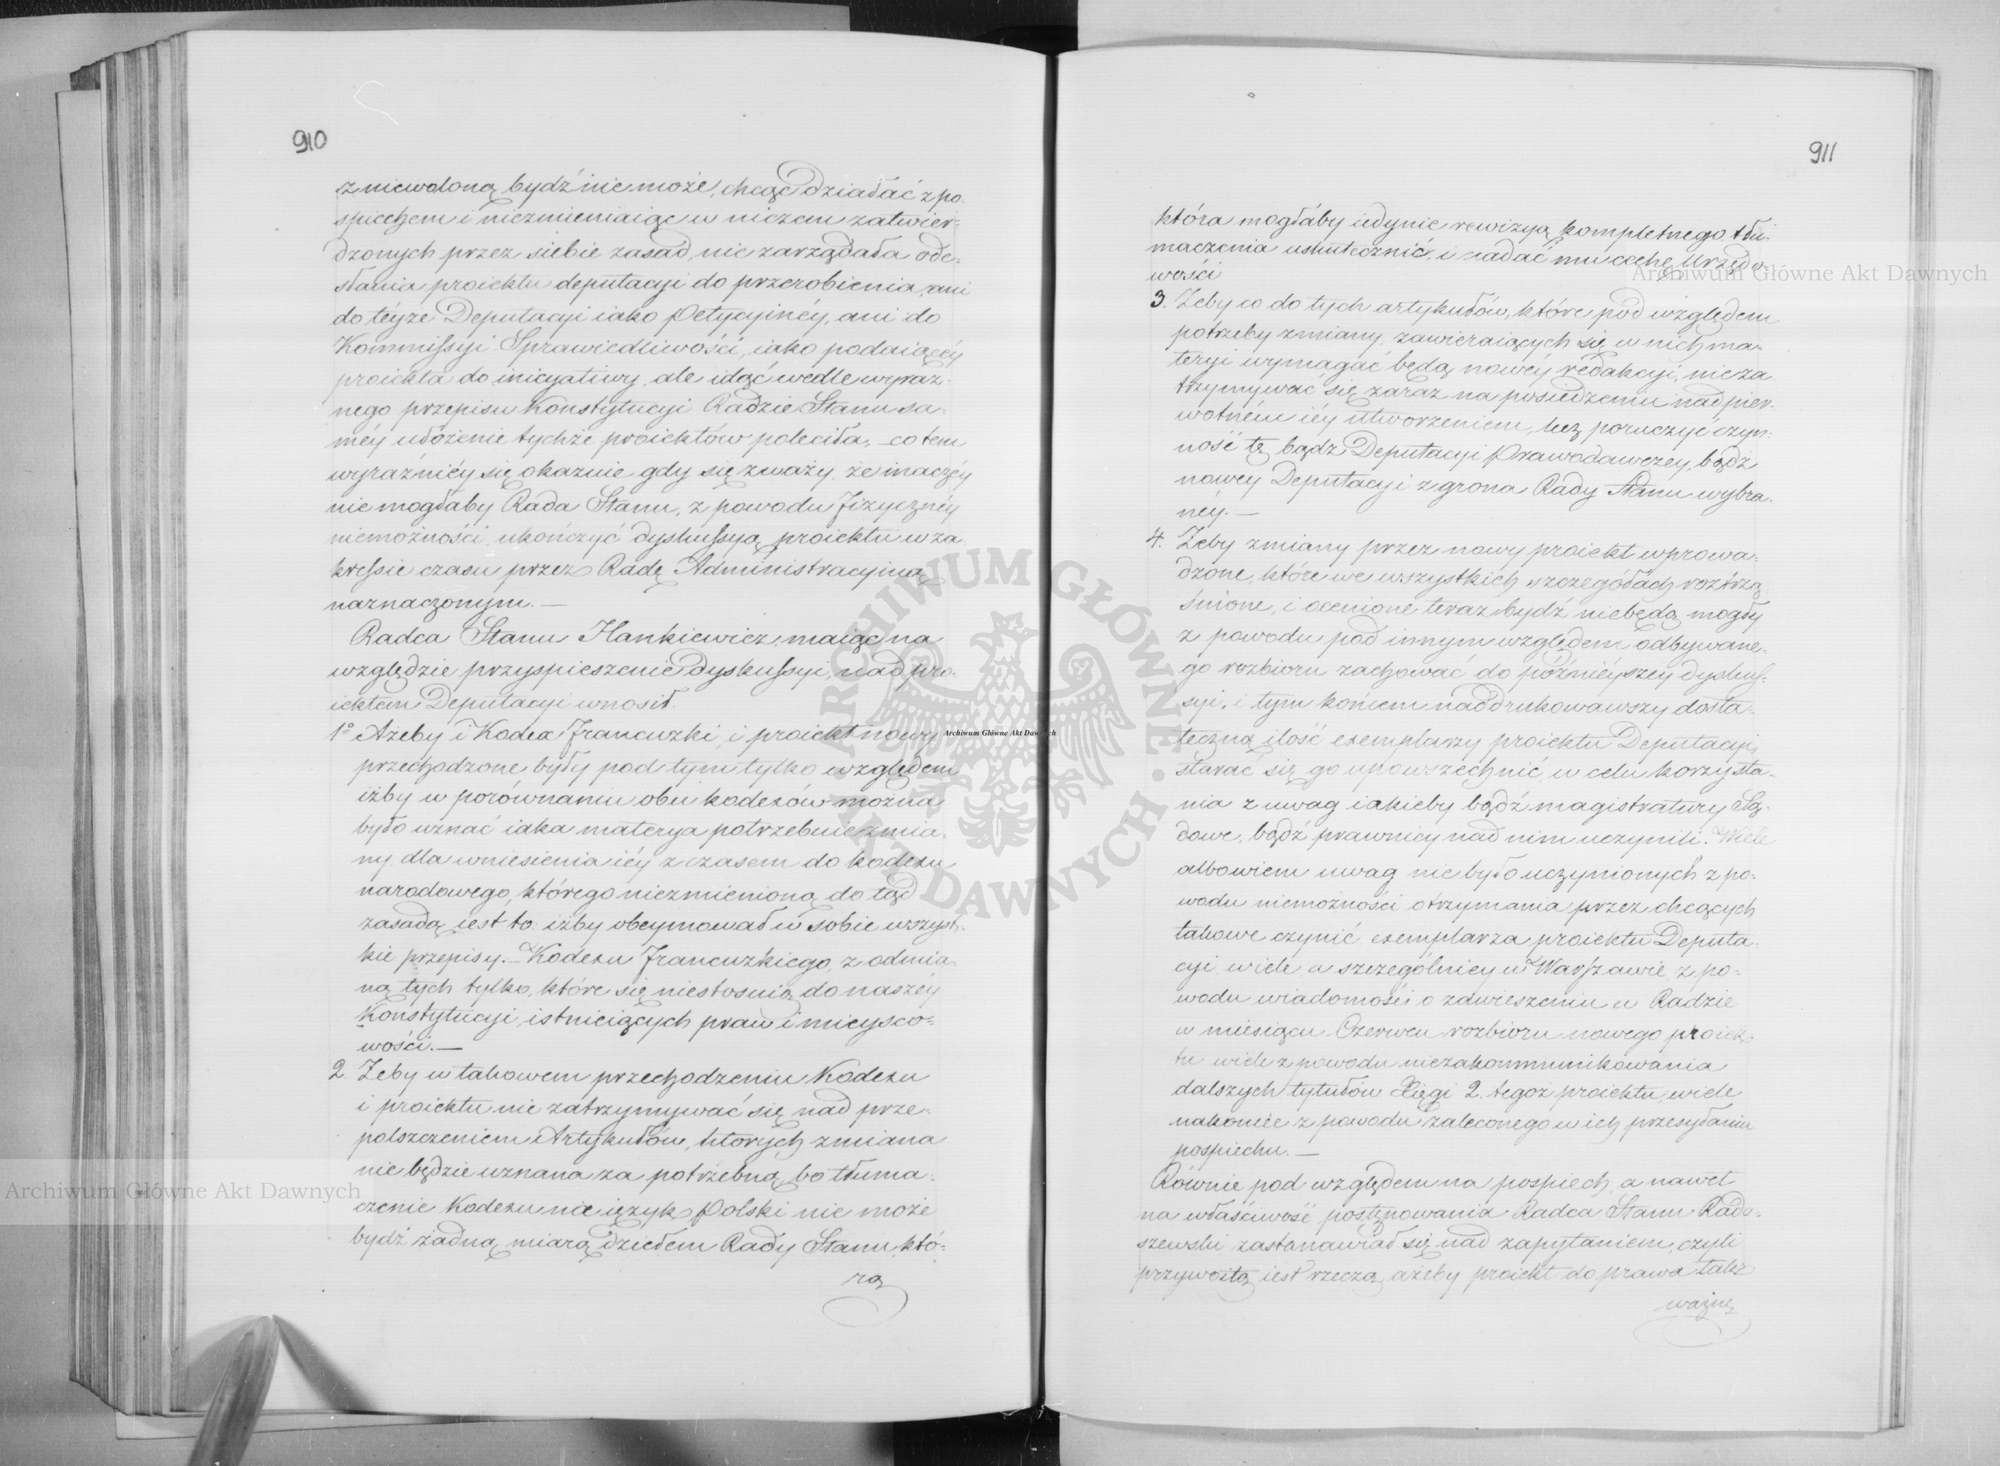 910
zniewoloną bydź nie może, chcąc działać z po-
spiechem i niezmieniaiąc w niczem zatwier-
dzonych przez siebie zasad, nie zarządała ode-
słania proiektu deputacyi do przerobienia, ani
do teyże Deputacyi iako Petycyinéy, ani do
Kommissyi Sprawiedliwości, iako podaiącéy
proiekta do inicyatiwy, ale idąc wedle wyraź-
nego przepisu Konstytucyi Radzie Stanu sa-
méy ułożenie tychże proiektów poleciła, co tem
wyraźniéy się okazuie gdy się zważy, że inaczéy
nie mogłaby Rada Stanu, z powodu fizycznéy
niemożności, ukończyć dyskussyą proiektu w za
kressie czasu przez Radę Administracyiną
naznaczonym. —
Radca Stanu Hankiewicz maiąc na
względzie przyspieszenie dyskussyi, nad pro-
iektem Deputacyi wnosił.
1° Ażeby i Kodex Francuzki i proiekt nowy
przechodzone były pod tym tylko względem
iżby w porównaniu obu kodexów można
było uznać iaka materya potrzebuie zmia-
ny dla wniesienia iéy z czasem do kodexu
narodowego, którego niezmienioną do tąd
zasadą iest to: iżby obeymował w sobie wszyst-
kie przepisy. — Kodexu Francuzkiego, z odmia-
ną tych tylko, które się niestosuią do naszéy
Konstytucyi, istnieiących praw i mieysco-
wości. —
2. Żeby w takowem przechodzeniu Kodexu
i proiektu nie zatrzymywać się nad prze-
polszczeniem Artykułów, których zmiana
nie będzie uznana za potrzebną, bo tłuma-
czenie Kodexu na ięzyk Polski nie może
bydź żadną miarą dziełem Rady Stanu, któ-
ra
911
która mogłaby iedynie rewizyą kompletnego tłu-
maczenia uskutecznić, i nadać mu cechę Urzędo-
wości
3. Żeby co do tych artykułów, które pod względem
potrzeby zmiany, zawieraiących się w nich ma-
teryi wymagać będą nowéy redakcyi, nie za
trzymywać się zaraz na posiedzeniu nad pier-
wotném iéy utworzeniem, lecz poruczyć czyn-
ność tę bądź Deputacyi Prawodawczey, bądź
nowey Deputacyi z grona Rady Stanu wybra-
néy. —
4. Żeby zmiany przez nowy proiekt wprowa-
dzone, które we wszystkich szczegółach roztrzą
śnione, i ocenione teraz bydź niebędą mogły
z powodu pod innym względem odbywane-
go rozbioru zachować do późnieyszey dyskus-
syi, i tym końcem naddrukowawszy dosta-
teczną ilość exemplarzy proiektu Deputacyi,
starać się go upowszechnić, w celu korzysta-
nia z uwag iakieby bądź magistratury Są-
dowe, bądź prawnicy nad nim uczynili. Wiele
albowiem uwag nie było uczynionych z po-
wodu niemożności otrzymania przez chcących
takowe czynić exemplarza proiektu Deputa-
cyi, wiele a szczególniey w Warszawie z po-
wodu wiadomości o zawieszeniu w Radzie
w miesiącu Czerwcu rozbioru nowego proiek-
tu wiele z powodu niezakommunikowania
dalszych tytułów Xięgi 2. tegoż proiektu, wiele
nakoniec z powodu zaleconego w ich przesyłaniu
pospiechu. —
Równie pod względem na pospiech, a nawet
na właściwość postępowania Radca Stanu Rado-
szewski zastanawiał się nad zapytaniem, czyli
przyzwoitą iest rzeczą, ażeby proiekt do prawa takż
ważne
Archiwum Główne Akt Dawnych
Archiwum Główne Akt Dawnych
Archiwum Główne Akt Dawnych
ARCHIWUM GŁÓWNE AKT DAWNYCH